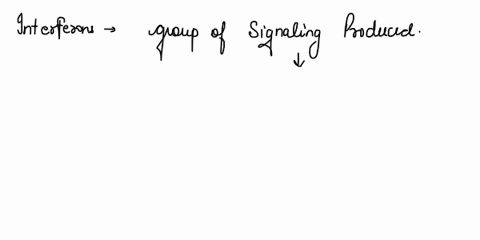 Interferons → group of Signaling Produced.
↓